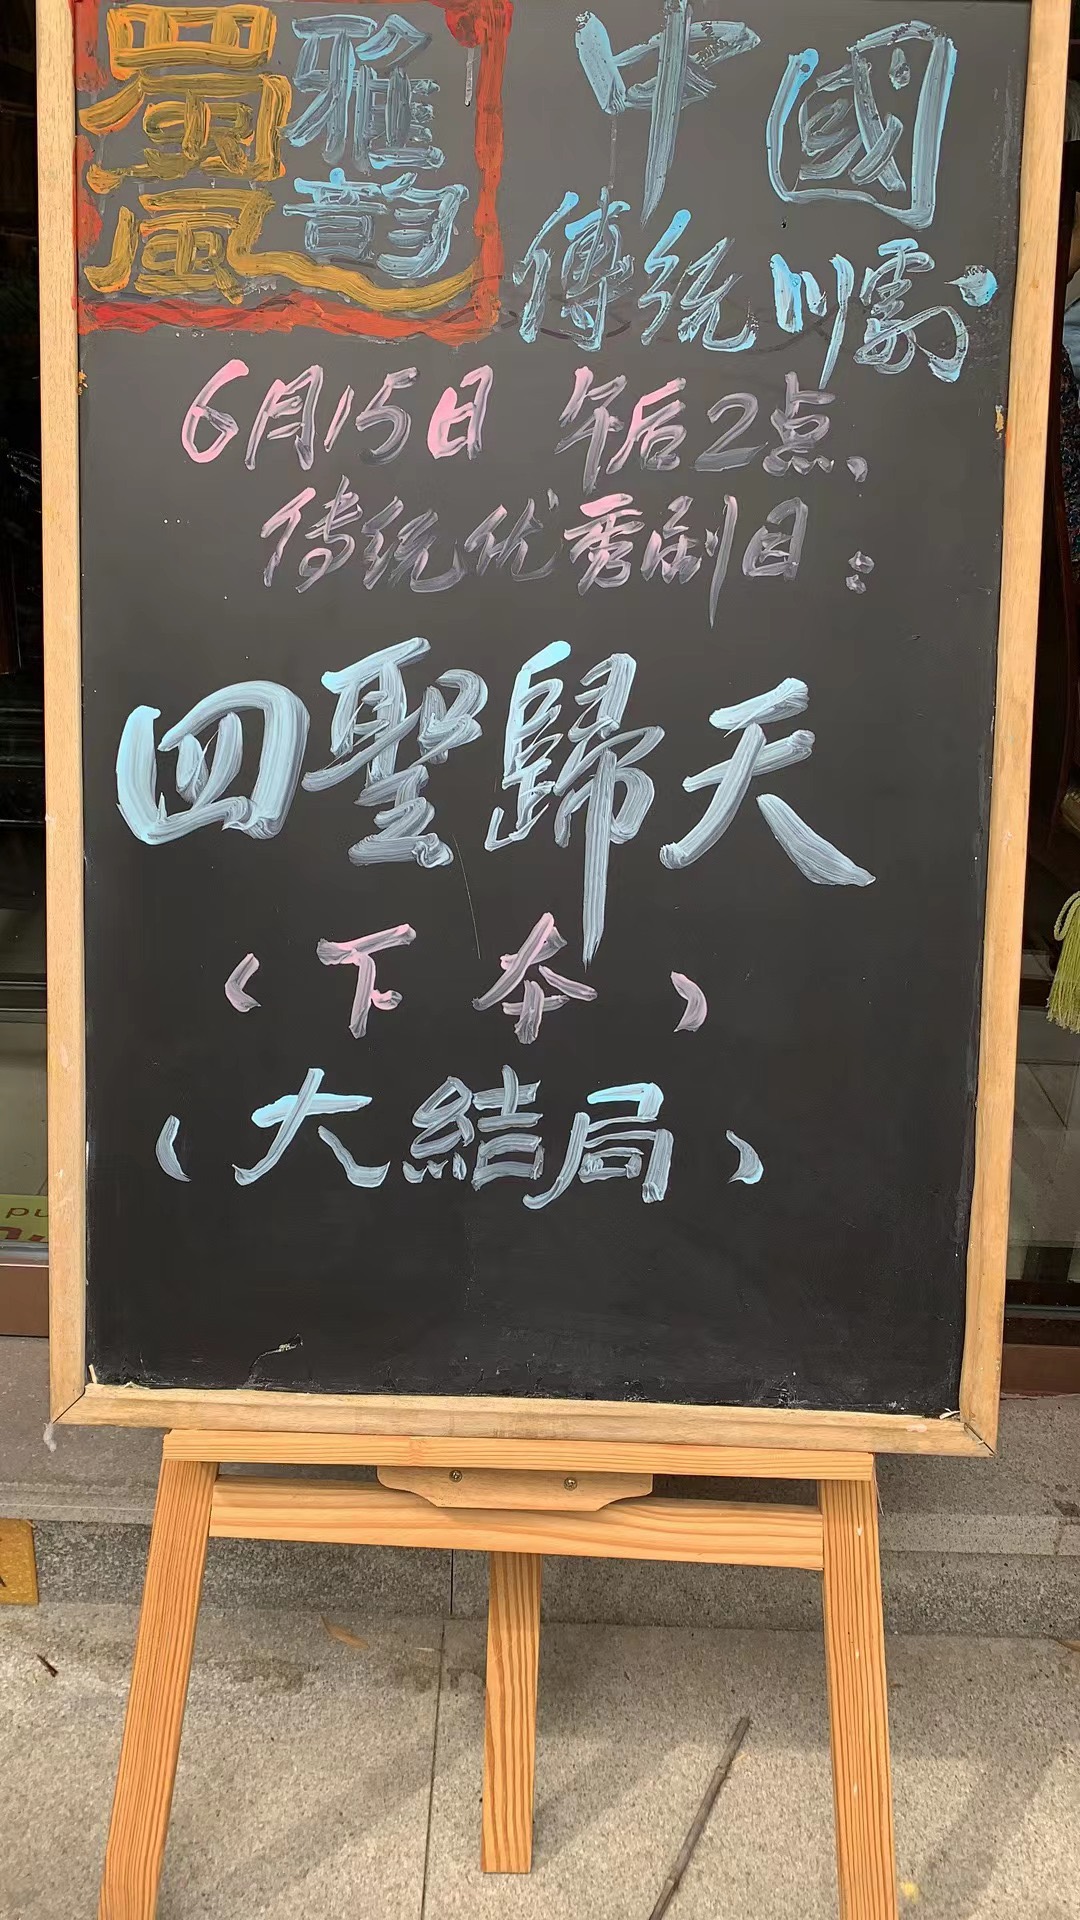 蜀風雅韵
中國
傳統川劇
6月15日 午后2点、
传统优秀剧目：
四聖歸天
（下本）
（大結局）